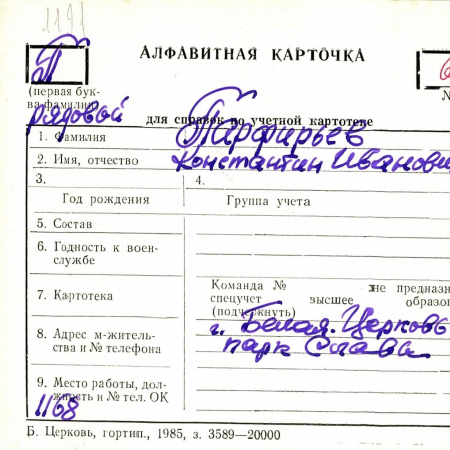 1191
П
АЛФАВИТНАЯ КАРТОЧКА
(первая бук-
ва фамилии)
№
рядовой
для справок по учетной картотеке
1. Фамилия Парфирьев
2. Имя, отчество Константин Иванови
3.
Год рождения
4.
Группа учета
5. Состав
6. Годность к воен-
службе
7. Картотека
Команда № не предназн
спецучет высшее образо
(подчеркнуть)
8. Адрес м-житель-
ства и № телефона
г. Белая Церковь
парк Слава
9. Место работы, дол-
жность и № тел. ОК
1168
Б. Церковь, гортип., 1985, з. 3589—20000